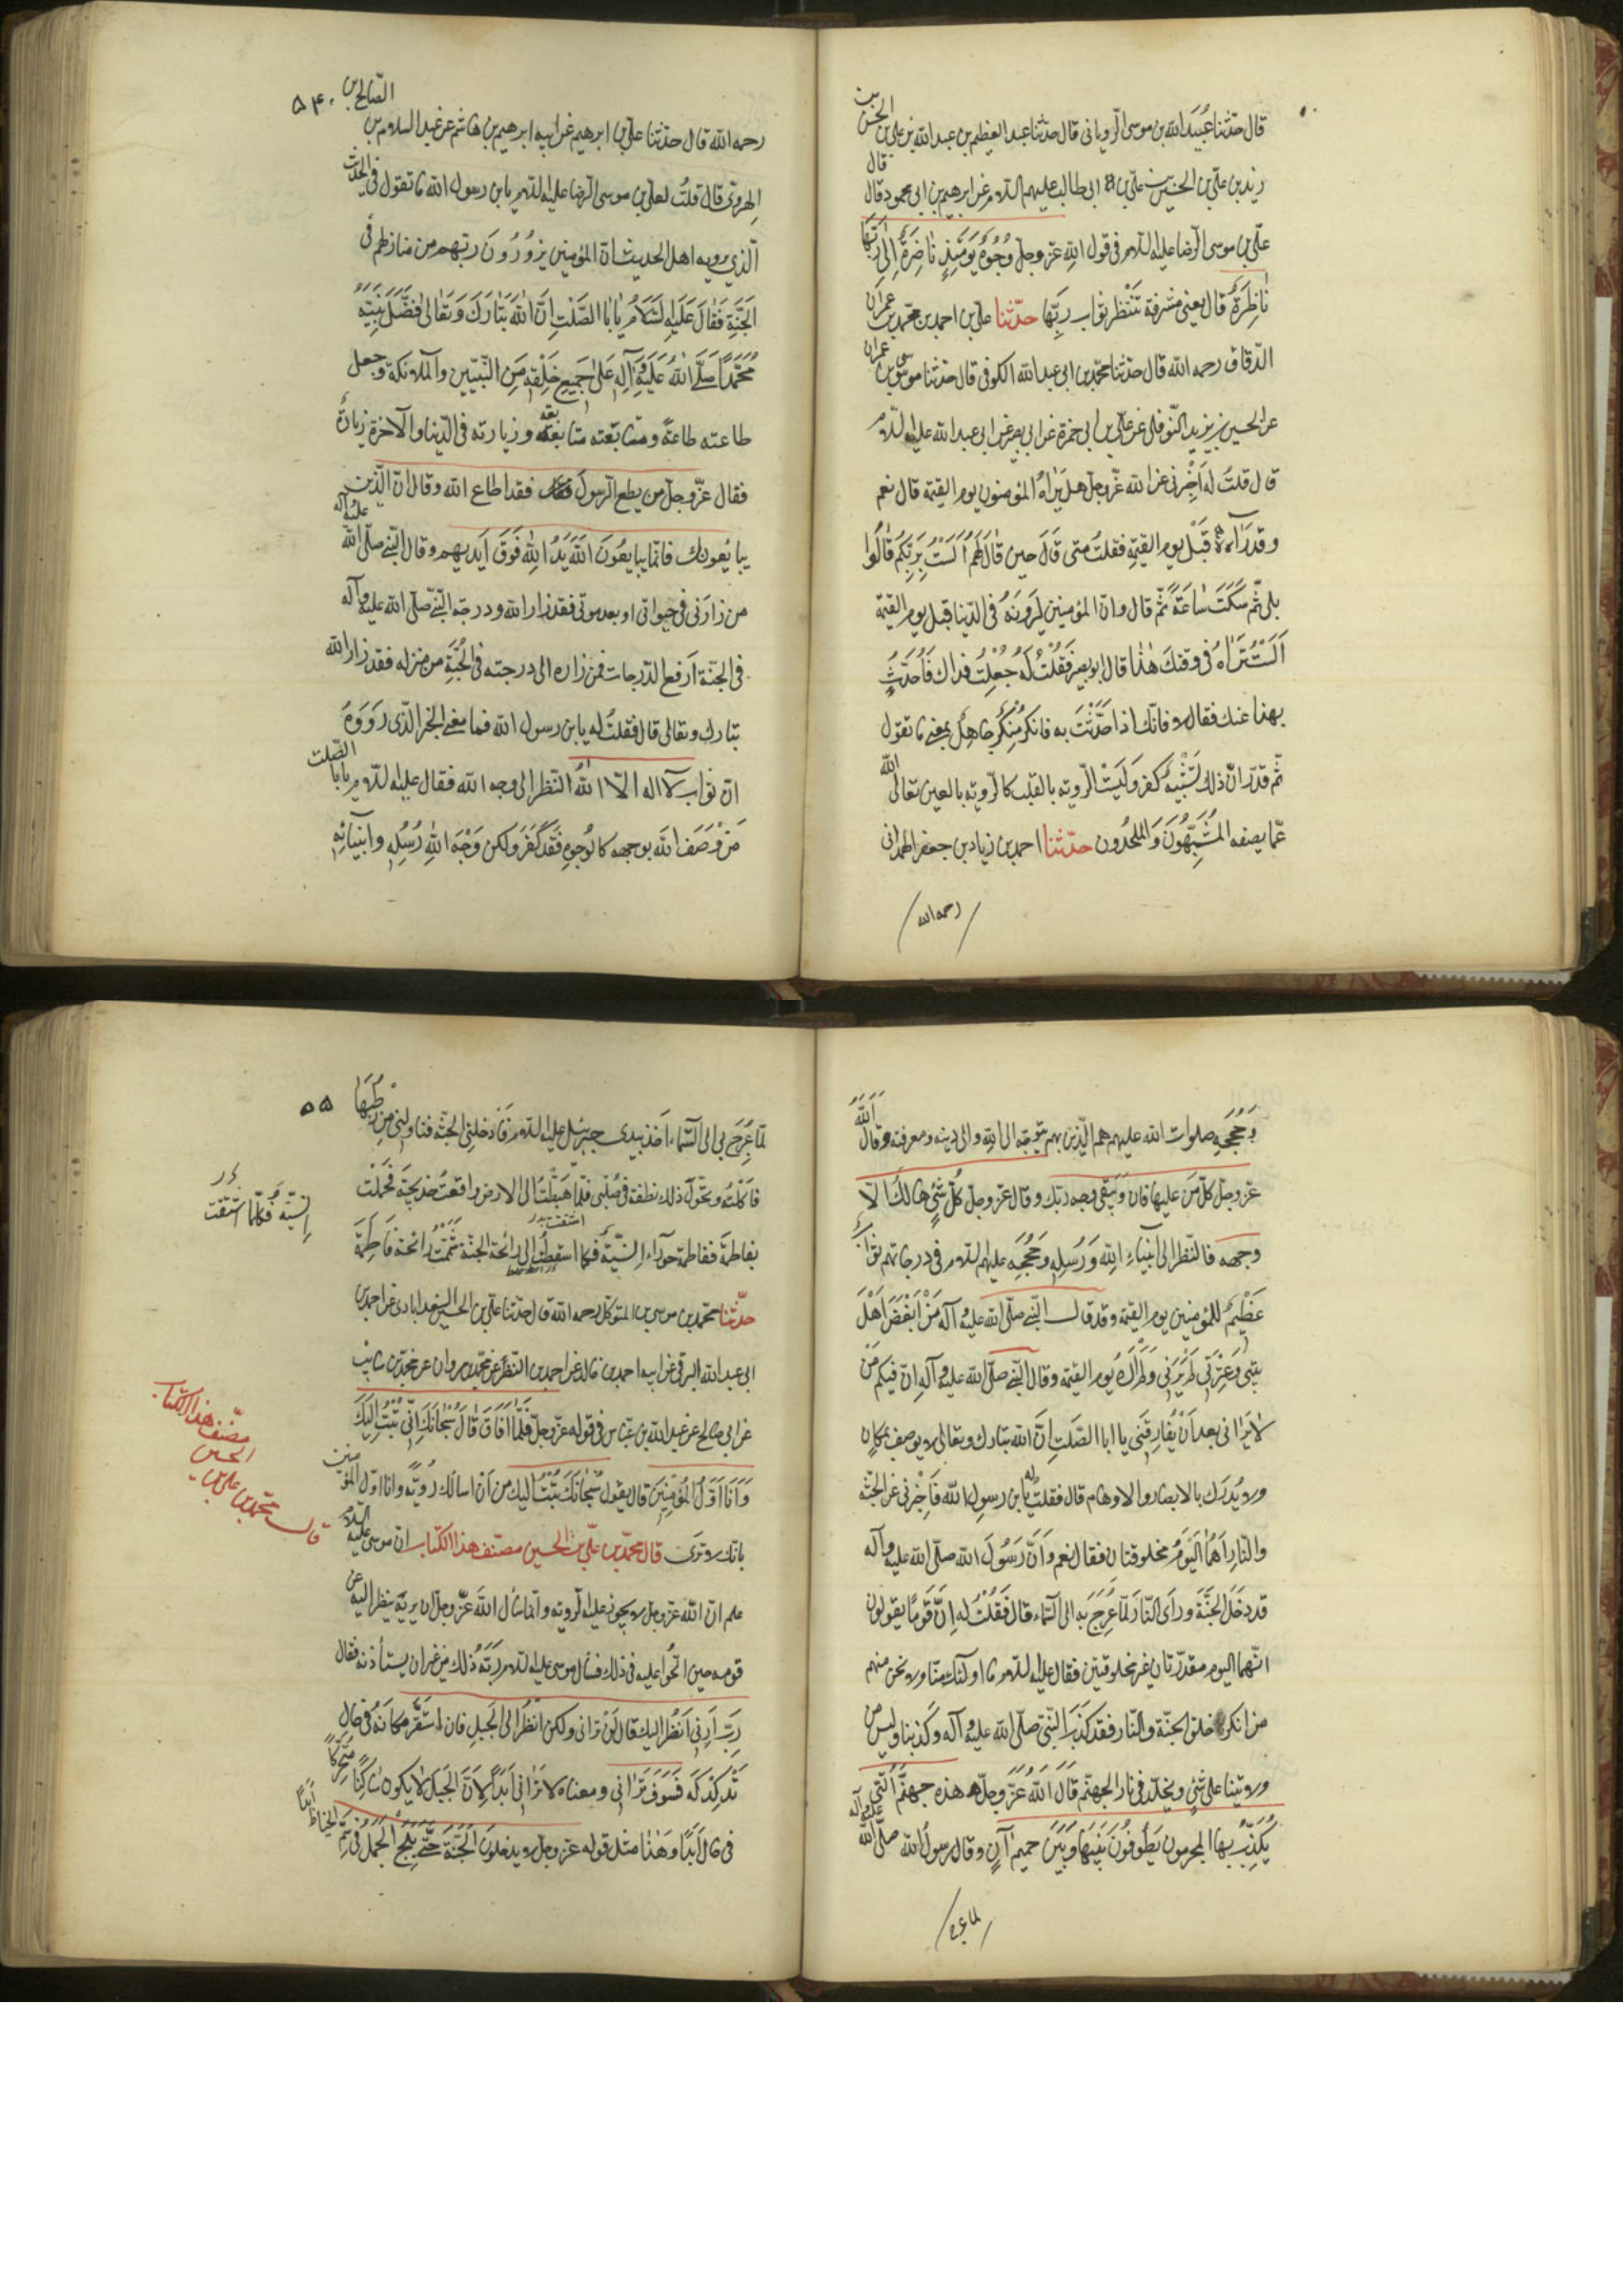 قال حدّثنا عبيد الله بن موسى الرّوياني قال حدّثنا عبد العظيم بن عبد الله بن علي بن الحسن بن
زيد بن علي بن الحسين بن علي بن ابى طالب عليهم السلام عن ابرهيم بن ابى محمود قال قال
علي بن موسى الرّضا عليه السلام في قول الله عزّ وجلّ وُجُوهٌ يَوْمَئِذٍ نَاضِرَةٌ إِلَى رَبِّهَا
نَاظِرَةٌ قال يعنى مشرفة تَنْتَظر ثواب رَبِّهَا حدّثنا علي بن احمد بن محمد بن عمران
الدّقاق رحمه الله قال حدّثنا محمّد بن ابى عبد الله الكوفى قال حدّثنا موسى بن عمران
عن الحسين بن يزيد النّوفلى عن علي بن ابى حمزة عن ابى بصير عن ابى عبد الله عليه السلام
قال قلتُ له اَخْبِرْنى عن الله عزّ وجلّ هل يَرَاهُ المؤمنون يوم القيمة قال نعم
وقد رَاَوْهُ قَبْل يوم القيمة فقلتُ متى قَالَ حين قَالَ لَهُمْ اَلَسْتُ بِرَبِّكُمْ قَالُوا
بلى ثمّ سَكَتَ سَاعَةً ثمّ قال وانّ المؤمنين لَيَرَوْنَهُ فى الدّنيا قبل يوم القيمة
اَلَسْتَ تَرَاهُ فى وقتك هٰذا قال ابو بصير فَقُلْتُ لَهُ جُعِلْتُ فداك فَاُحَدِّثُ
بهذا عنك فقال لا فانّك اذا حَدَّثْتَ به فانكره مُنْكِرٌ جاهِلٌ بمعنى ما تقول
ثمّ قدّر انّ ذلك تَشْبِيهٌ كَفَرَ وَلَيْسَتْ الرّوية بالقلب كالرّوية بالعين تعالى الله
عمّا يصفه المُشَبِّهُونَ وَالملحدُون حدّثنا احمد بن زياد بن جعفر الهمدانى
رحمه الله
۵۴
رحمه الله قال حدّثنا علي بن ابرهيم عن ابيه ابرهيم بن هاشم عن عبد السلام بن الصّالح بن
الهروى قال قلتُ لعلي بن موسى الرّضا عليه السلام يابن رسول الله ما تقول فى الحديث
الّذى يرويه اهل الحديث انّ المؤمنين يَزُورُونَ ربّهم من منازلهم فى
الجَنَّةِ فَقَالَ عَلَيْهِ السَّلَامُ يَا اَبَا الصَّلْتِ اِنَّ اللهَ تَبَارَكَ وَتَعَالى فَضَّلَ نَبِيَّهُ
مُحَمَّدًا صَلَّى اللهُ عَلَيْهِ وَآلِهِ عَلَى جَمِيعِ خَلْقِهِ مِنَ النَّبِيّين والملائكة وجعل
طاعته طاعتَهُ ومتابَعَته متابَعَته وزيارته فى الدّنيا والآخرة زيارته
فقال عزّ وجلّ من يطع الرّسول فقد اطاع الله وقال انّ الّذين
يبايعونك فانّما يبايعُونَ اللهَ يَدُ اللهِ فَوْقَ اَيديهم وقال النّبى صلّى الله عليه وآله
من زارَنى فى حيواتى او بعد موتى فقد زار الله ودرجة النّبى صلّى الله عليه وآله
فى الجنّة اَرفع الدّرجات فمن زاره الى درجته فى الجَنَّةِ من منزله فقد زار الله
تبارك وتعالى قال فقلتُ له يابن رسول الله فما معنى الخبر الّذى رَوَوْهُ
انّ ثواب لا اله الاّ اللهُ النّظر الى وجه الله فقال عليه السلام يا ابا الصّلت
مَنْ وَصَفَ اللهَ بوجهٍ كالوُجوهِ فَقَدْ كَفَرَ ولكن وَجْهَ اللهِ رُسُلِهِ وانبيائِهِ
وَحُجَجِهِ صلوات الله عليهم هم الّذين بهم يتوجّه الى الله والى دينه ومعرفته وقال اَللهُ
عزّ وجلّ كلّ مَن عليها فان وَيَبْقى وجه ربّك وقال عزّ وجلّ كلّ شَىْءٍ هالكٌ الّا
وجهه فالنّظر الى اَنبياءِ اللهِ وَرُسُلِهِ وَحُجَجِهِ عليهم السلام فى درجاتهم ثوابٌ
عَظِيمٌ للمؤمنين يوم القيمة وقد قال النّبى صلّى الله عليه وآله مَنْ اَبْغَضَ اَهْلَ
بَيْتى وَعِتْرَتى لَمْ يَرَنى وَلَمْ اَرَهُ يوم القيمة وقال النّبى صلّى الله عليه وآله انّ فيكم مَنْ
لا يَرَانى بعد اَنْ يُفَارِقَنى يا ابا الصَّلتِ اِنَّ الله تبارك وتعالى لا يوصف بمكان
ولا يُدرَك بالابصار والاوهام قال فقلت له يابن رسول الله فَاَخْبِرْنى عن الجنّة
والنّار اَهُمَا اليَوْم مخلوقتان فقال نعم وَاَنَّ رَسُولَ الله صلّى الله عليه وآله
قد دَخَلَ الجَنَّةَ ورأى النّار لَمّا عُرِجَ به الى السّماء قال فَقُلْتُ له اِنَّ قومًا يقولون
انّهما اليوم مقدّرتان غير مخلوقتين فقال عليه السلام ما اولئك منّا ولا نحن منهم
من انكر خلق الجنّة والنّار فقد كذّب النّبى صلّى الله عليه وآله وكذّبنا وليس من
ولايتنا على شَىْءٍ ويخلّد فى نار الجهنّم قَالَ اللهُ عزّ وجلّ هذه جهنّمُ الّتى
يُكَذِّبُ بها المجرمون يَطُوفُونَ بَيْنَهَا وَبَيْنَ حميمٍ آنٍ وقال رسول الله صلّى الله عليه وآله
لما عرج
۵۵
لَمّا عُرِجَ بى الى السّماء اَخذ بيدى جبرئيل عليه السلام فَاَدْخلنى الجنّة فناولنى مِنْ رُطَبِهَا
فاَكلْتُهُ وتحوّل ذلك نطفة فى صُلبى فلمّا هَبَطْتُ الى الارض واقعتُ خديجة فحَمَلَت
بفاطمة ففاطمة حوراء اِنْسِيّة فكلّما اشتقت الى رائحة الجنّة شَمَمْتُ رائحة فَاطِمَةَ
اشتقت بدر
اِنسيّة فكلّما اشتقت
حدّثنا محمّد بن موسى بن المتوكّل رحمه الله قال حدّثنا علي بن الحسين السعدابادى عن احمد بن
ابى عبد الله البرقى عن ابيه احمد بن خالد عن احمد بن النّضر عن محمّد بن مروان عن محمّد بن سائب
عن ابى صالح عن عبد الله بن عبّاس فى قوله عزّ وجلّ فَلَمَّا اَفَاقَ قَالَ سُبْحَانَكَ اِنّى تُبْتُ اِلَيْكَ
وَاَنَا اَوَّلُ الْمُؤْمِنِينَ قال يقول سُبْحَانَكَ تُبْتُ اليك من اَنْ اسالك رُوية وانا اوّل المؤمنين
بانّك لا ترى قال محمّد بن علي بن الحسين مصنّف هذا الكتاب انّ موسى عليه السلام
علم انّ الله عزّ وجلّ لا يجوز عليه الرّوية وانّما سأل اللهَ عزّ وجلّ ان يريه ينظر اليه عن
قومه حين الحّوا عليه فى ذلك فسأل موسى عليه السلام رَبّه ذلك مِن غير ان يستأذنه فقال
رَبِّ اَرِنى اَنظُرْ اليك قال لَنْ ترانى ولكن انظُر الى الجبل فان استقرّ مكانَهُ فى حال
تَدَكْدُكه فَسَوْفَ تَرَانى ومعناه لا ترانى اَبَدًا لِاَنَّ الجَبَلَ لا يكون ساكِنًا متحرّكًا
فى حال اَبَدًا وَهٰذا مثل قوله عزّ وجلّ لا يدخلونَ الجَنَّةَ حتّى يَلِجَ الْجَمَلُ فى سَمِّ الخياط اَبَدًا
قال محمّد بن علي بن
الحسين
مصنّف هذا الكتاب